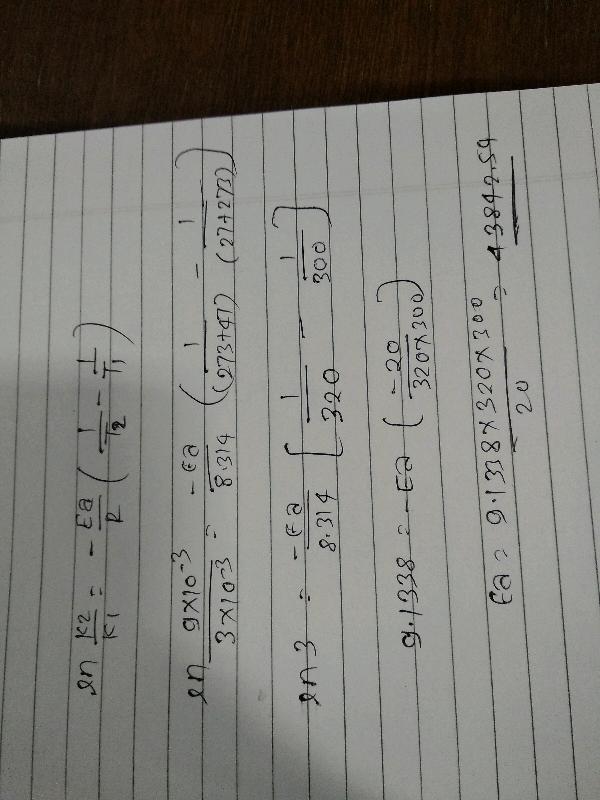 ln K2/K1 = - Ea/R ( 1/T2 - 1/T1 )
ln 9x10^-3 / 3x10^-3 = -Ea/8.314 ( 1/(273+47) - 1/(27+273) )
ln 3 = -Ea/8.314 [ 1/320 - 1/300 ]
9.1338 = -Ea ( -20/320x300 )
Ea = 9.1338x320x300 / 20 = 43842.54